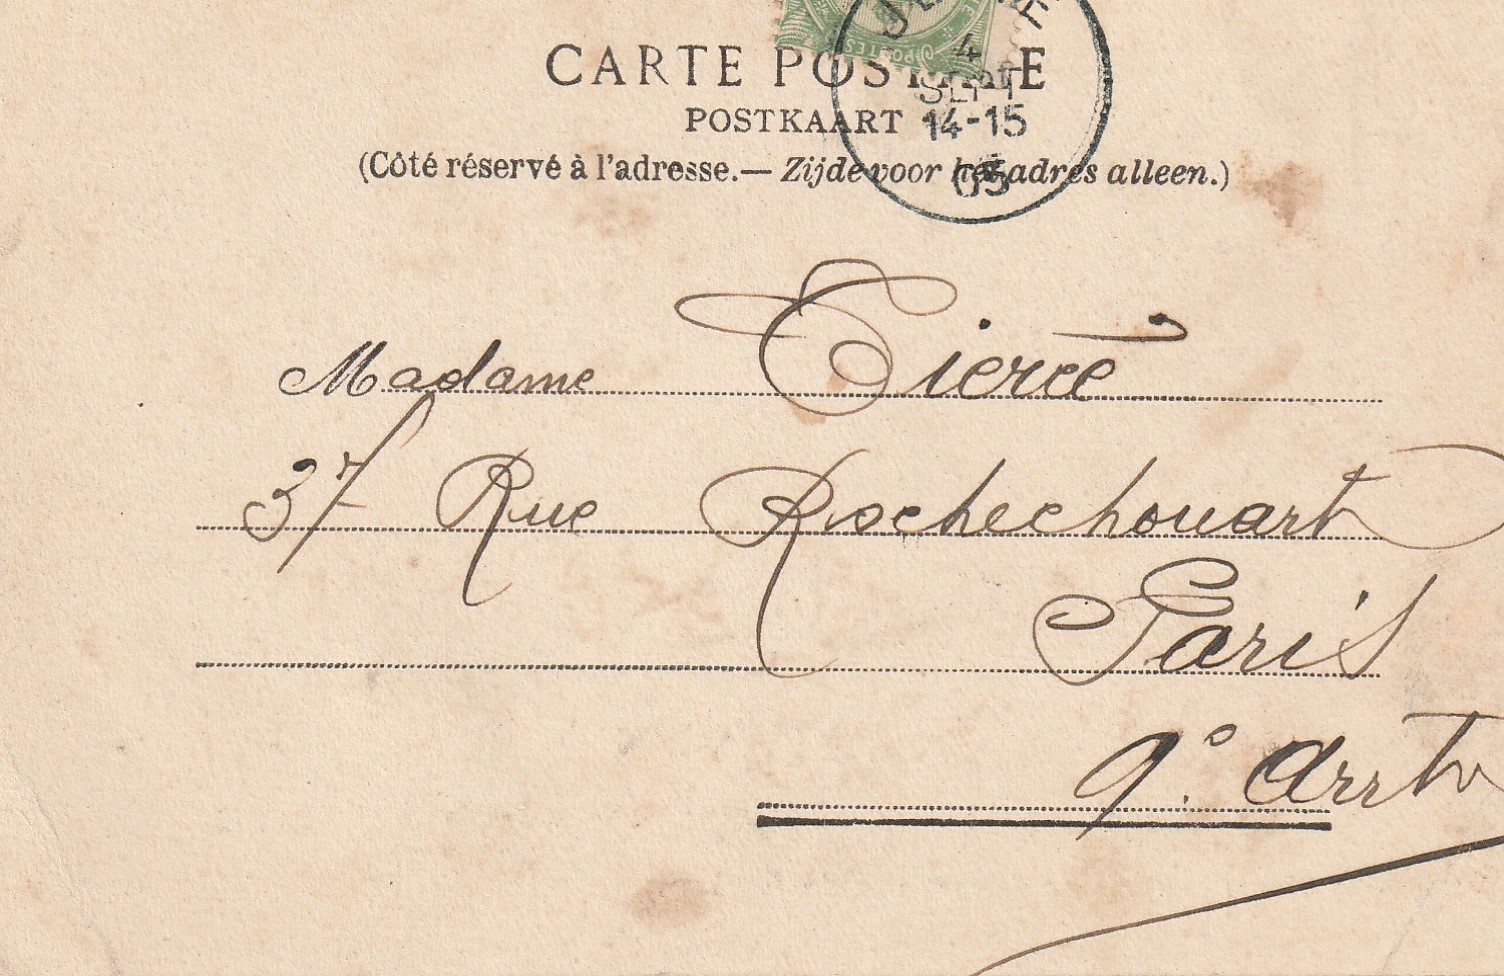 POSTES
CARTE POSTALE
4
SEPT
14-15
05
POSTKAART
(Côté réservé à l'adresse.— Zijde voor het adres alleen.)
Madame Tiercé
37 Rue Rochechouart
Paris
9e Arrt